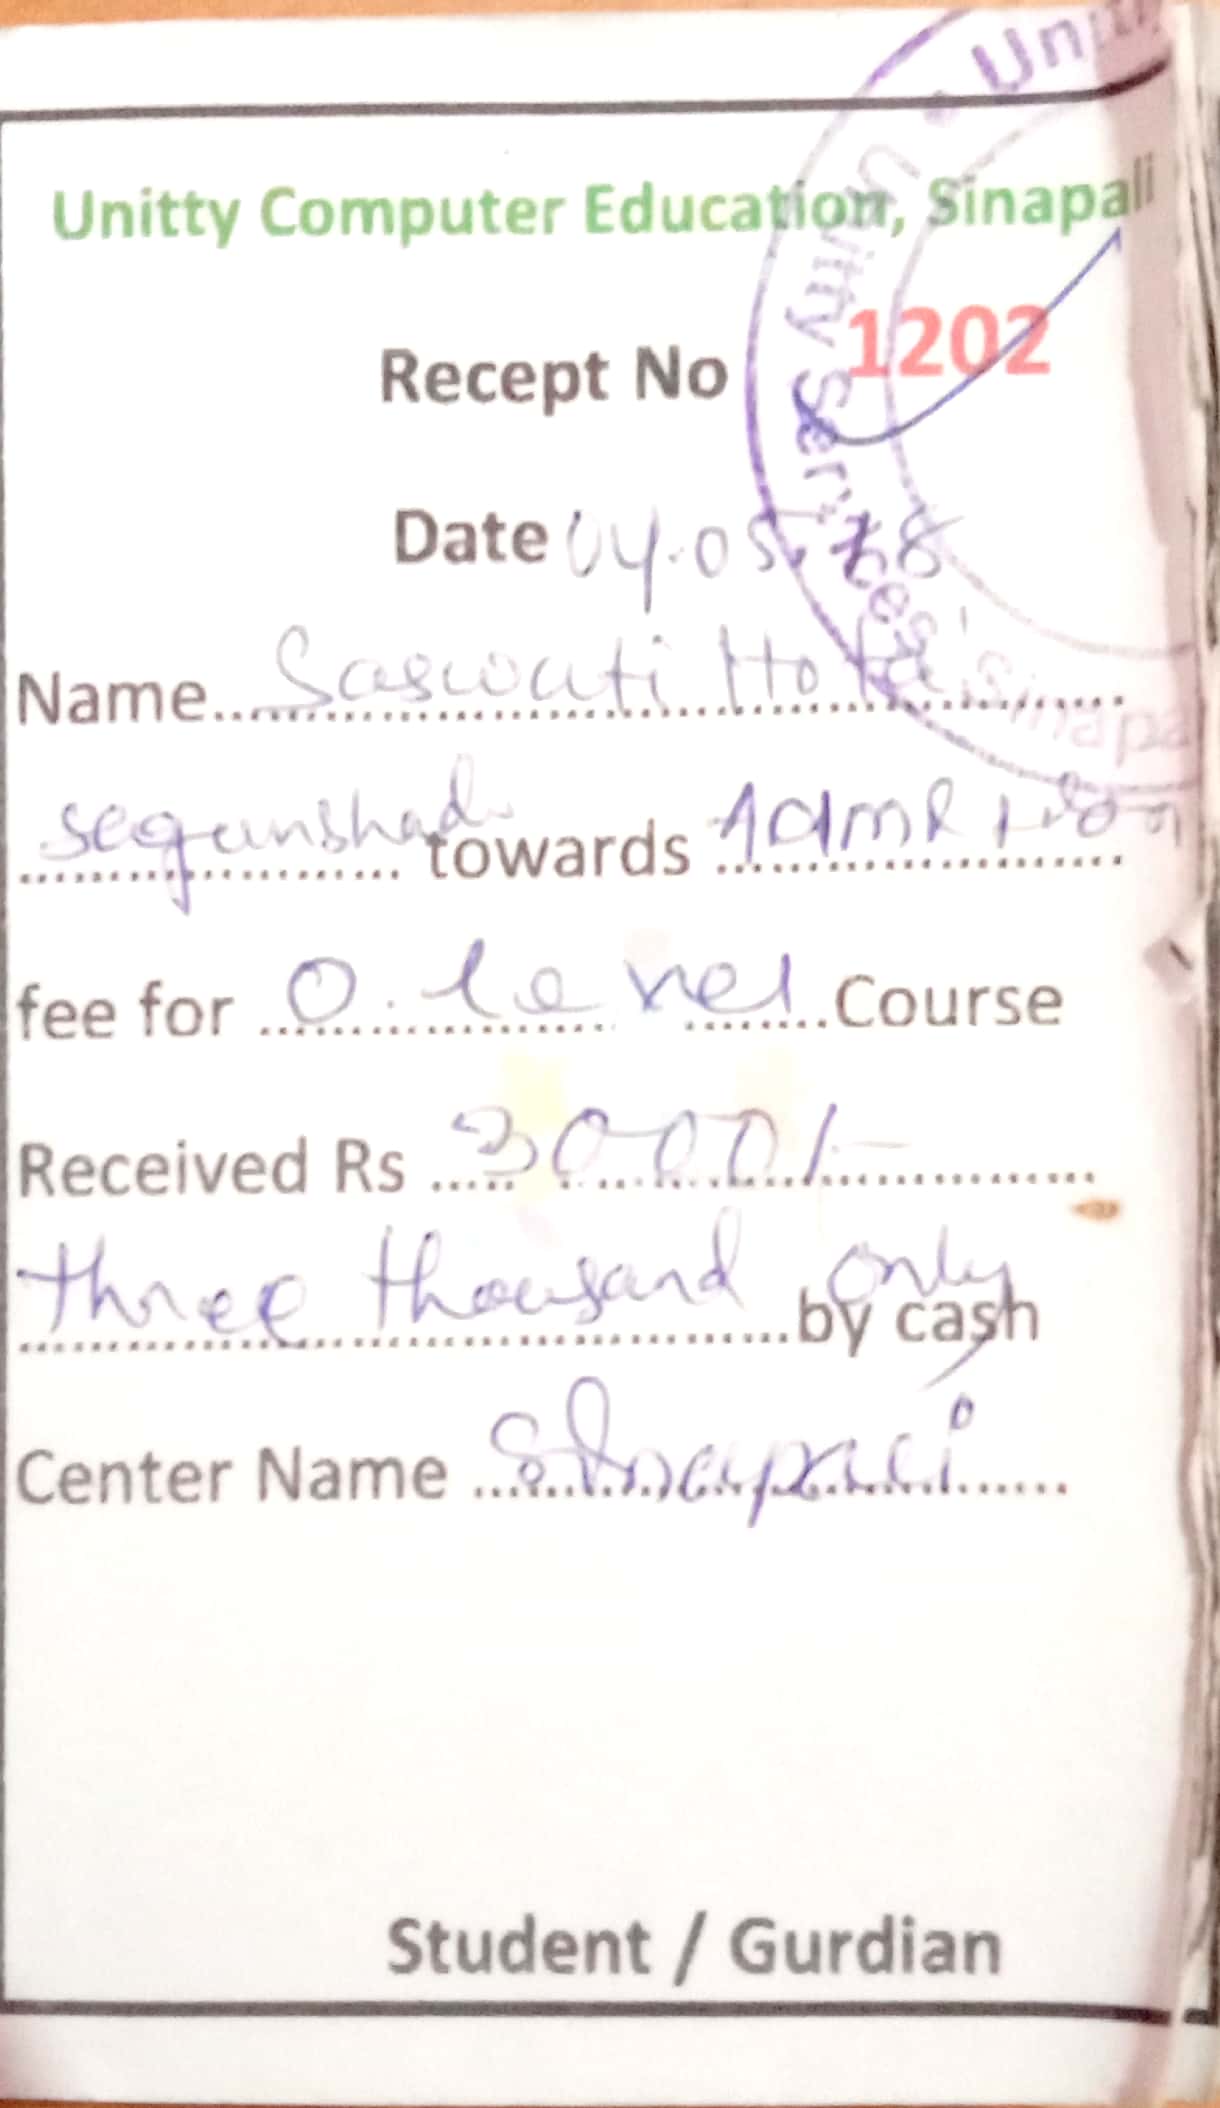 Unitty Computer Education, Sinapali
Recept No 1202
Date 04.05.18
Name Saswati Hota
towards Admission
fee for O. level Course
Received Rs 3000/-
three thousand only by cash
Center Name Sinapali
Student / Gurdian
Unitty Services, Sinapa